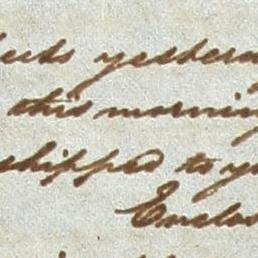 yesterday
this morning
shipped to
Enclos